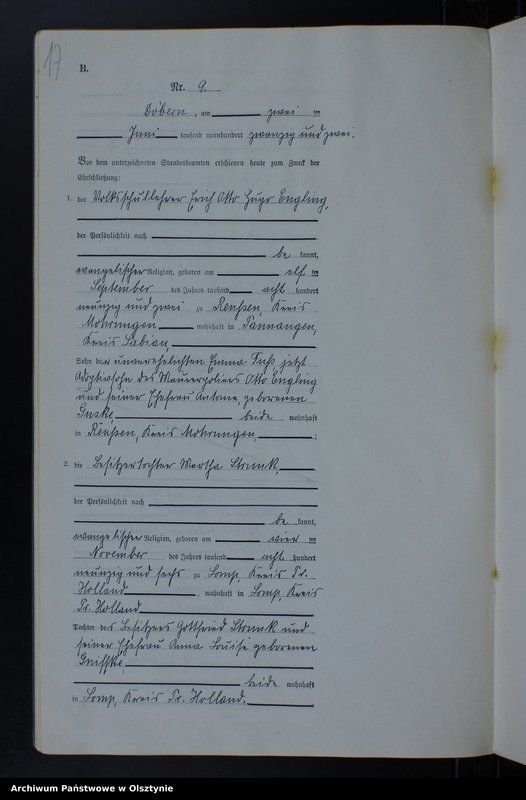 17
B.
Nr. 9.
Döbern, am zwei ten
Juni tausend neunhundert zwanzig und zwei.
Vor dem unterzeichneten Standesbeamten erschienen heute zum Zweck der
Eheschließung:
1. der Volksschullehrer Erich Otto Hugo Engling,
der Persönlichkeit nach
be kannt,
evangelischer Religion, geboren am elf ten
September des Jahres tausend acht hundert
neunzig und zwei zu Reußen, Kreis
Mohrungen wohnhaft in
Kreis Labiau,
Sohn der unverehelichten Emma jetzt
Adoptivsohn des Maurerpoliers Otto Engling
und seiner Ehefrau geborenen
Guske, beide wohnhaft
in Reußen, Kreis Mohrungen, ;
2. die Besitzertochter Martha Strunk,
der Persönlichkeit nach
be kannt,
evangelischer Religion, geboren am vier ten
November des Jahres tausend acht hundert
neunzig und sechs zu Lomp, Kreis Pr.
Holland, wohnhaft in Lomp, Kreis
Pr. Holland
Tochter des Besitzers Gottfried Strunk und
seiner Ehefrau Anna Louise geborenen
beide wohnhaft
in Lomp, Kreis Pr. Holland.
Archiwum Państwowe w Olsztynie